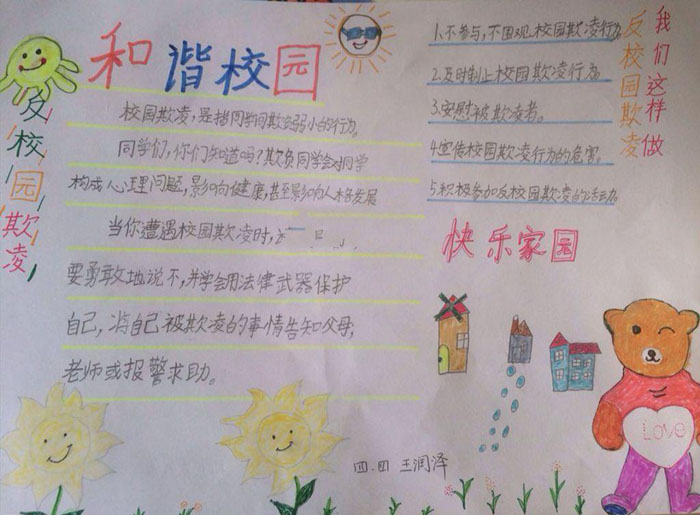 和谐校园
反校园欺凌
校园欺凌,是指同学间欺负弱小的行为。
同学们,你们知道吗?欺负同学会对同学
构成心理问题,影响健康,甚至影响人格发展
当你遭遇校园欺凌时,
要勇敢地说不,并学会用法律武器保护
自己,将自己被欺凌的事情告知父母,
老师或报警求助。
我们这样做
反校园欺凌
1.不参与,不围观校园欺凌行为
2.及时制止校园欺凌行为
3.安慰被欺凌者。
4.宣传校园欺凌行为的危害。
5.积极参加反校园欺凌的活动
快乐家园
Love
四.四 王润泽